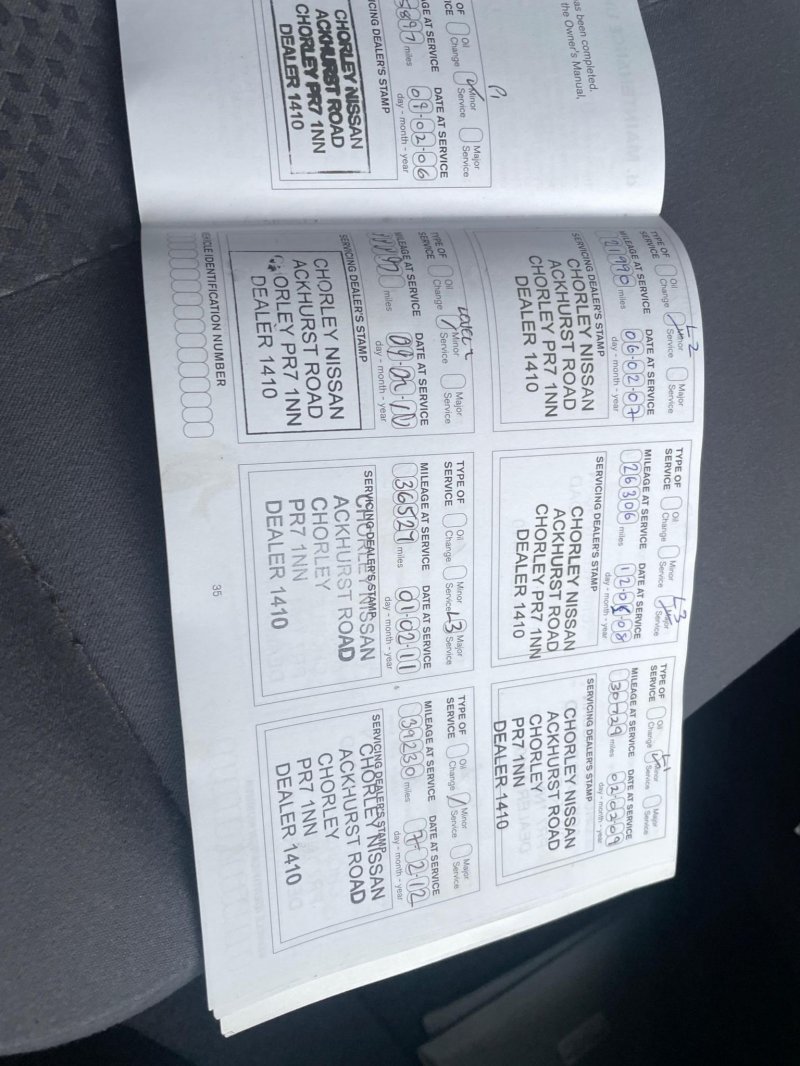 as been completed.
the Owner's Manual,
P1
OF
ICE
Oil
Change
Minor
Service
Major
Service
GE AT SERVICE
DATE AT SERVICE
miles
09·02·06
day - month - year
ICING DEALER'S STAMP
CHORLEY NISSAN
ACKHURST ROAD
CHORLEY PR7 1NN
DEALER 1410
L2
TYPE OF
SERVICE
Oil
Change
Minor
Service
Major
Service
MILEAGE AT SERVICE
DATE AT SERVICE
21990 miles
06·02·07
day - month - year
SERVICING DEALER'S STAMP
CHORLEY NISSAN
ACKHURST ROAD
CHORLEY PR7 1NN
DEALER 1410
L3
TYPE OF
SERVICE
Oil
Change
Minor
Service
Major
Service
MILEAGE AT SERVICE
DATE AT SERVICE
26306 miles
day - month - year
SERVICING DEALER'S STAMP
CHORLEY NISSAN
ACKHURST ROAD
CHORLEY PR7 1NN
DEALER 1410
L1
TYPE OF
SERVICE
Oil
Change
Minor
Service
Major
Service
MILEAGE AT SERVICE
DATE AT SERVICE
30429 miles
02·02·09
day - month - year
SERVICING DEALER'S STAMP
CHORLEY NISSAN
ACKHURST ROAD
CHORLEY
PR7 1NN
DEALER 1410
TYPE OF
SERVICE
Oil
Change
Minor
Service
Major
Service
MILEAGE AT SERVICE
DATE AT SERVICE
miles
day - month - year
SERVICING DEALER'S STAMP
CHORLEY NISSAN
ACKHURST ROAD
CHORLEY PR7 1NN
DEALER 1410
TYPE OF
SERVICE
Oil
Change
Minor
Service
L3
Major
Service
MILEAGE AT SERVICE
DATE AT SERVICE
36527 miles
01·02·11
day - month - year
SERVICING DEALER'S STAMP
CHORLEY NISSAN
ACKHURST ROAD
CHORLEY
PR7 1NN
DEALER 1410
TYPE OF
SERVICE
Oil
Change
Minor
Service
Major
Service
MILEAGE AT SERVICE
DATE AT SERVICE
39230 miles
7·02·12
day - month - year
SERVICING DEALER'S STAMP
CHORLEY NISSAN
ACKHURST ROAD
CHORLEY
PR7 1NN
DEALER 1410
VEHICLE IDENTIFICATION NUMBER
35